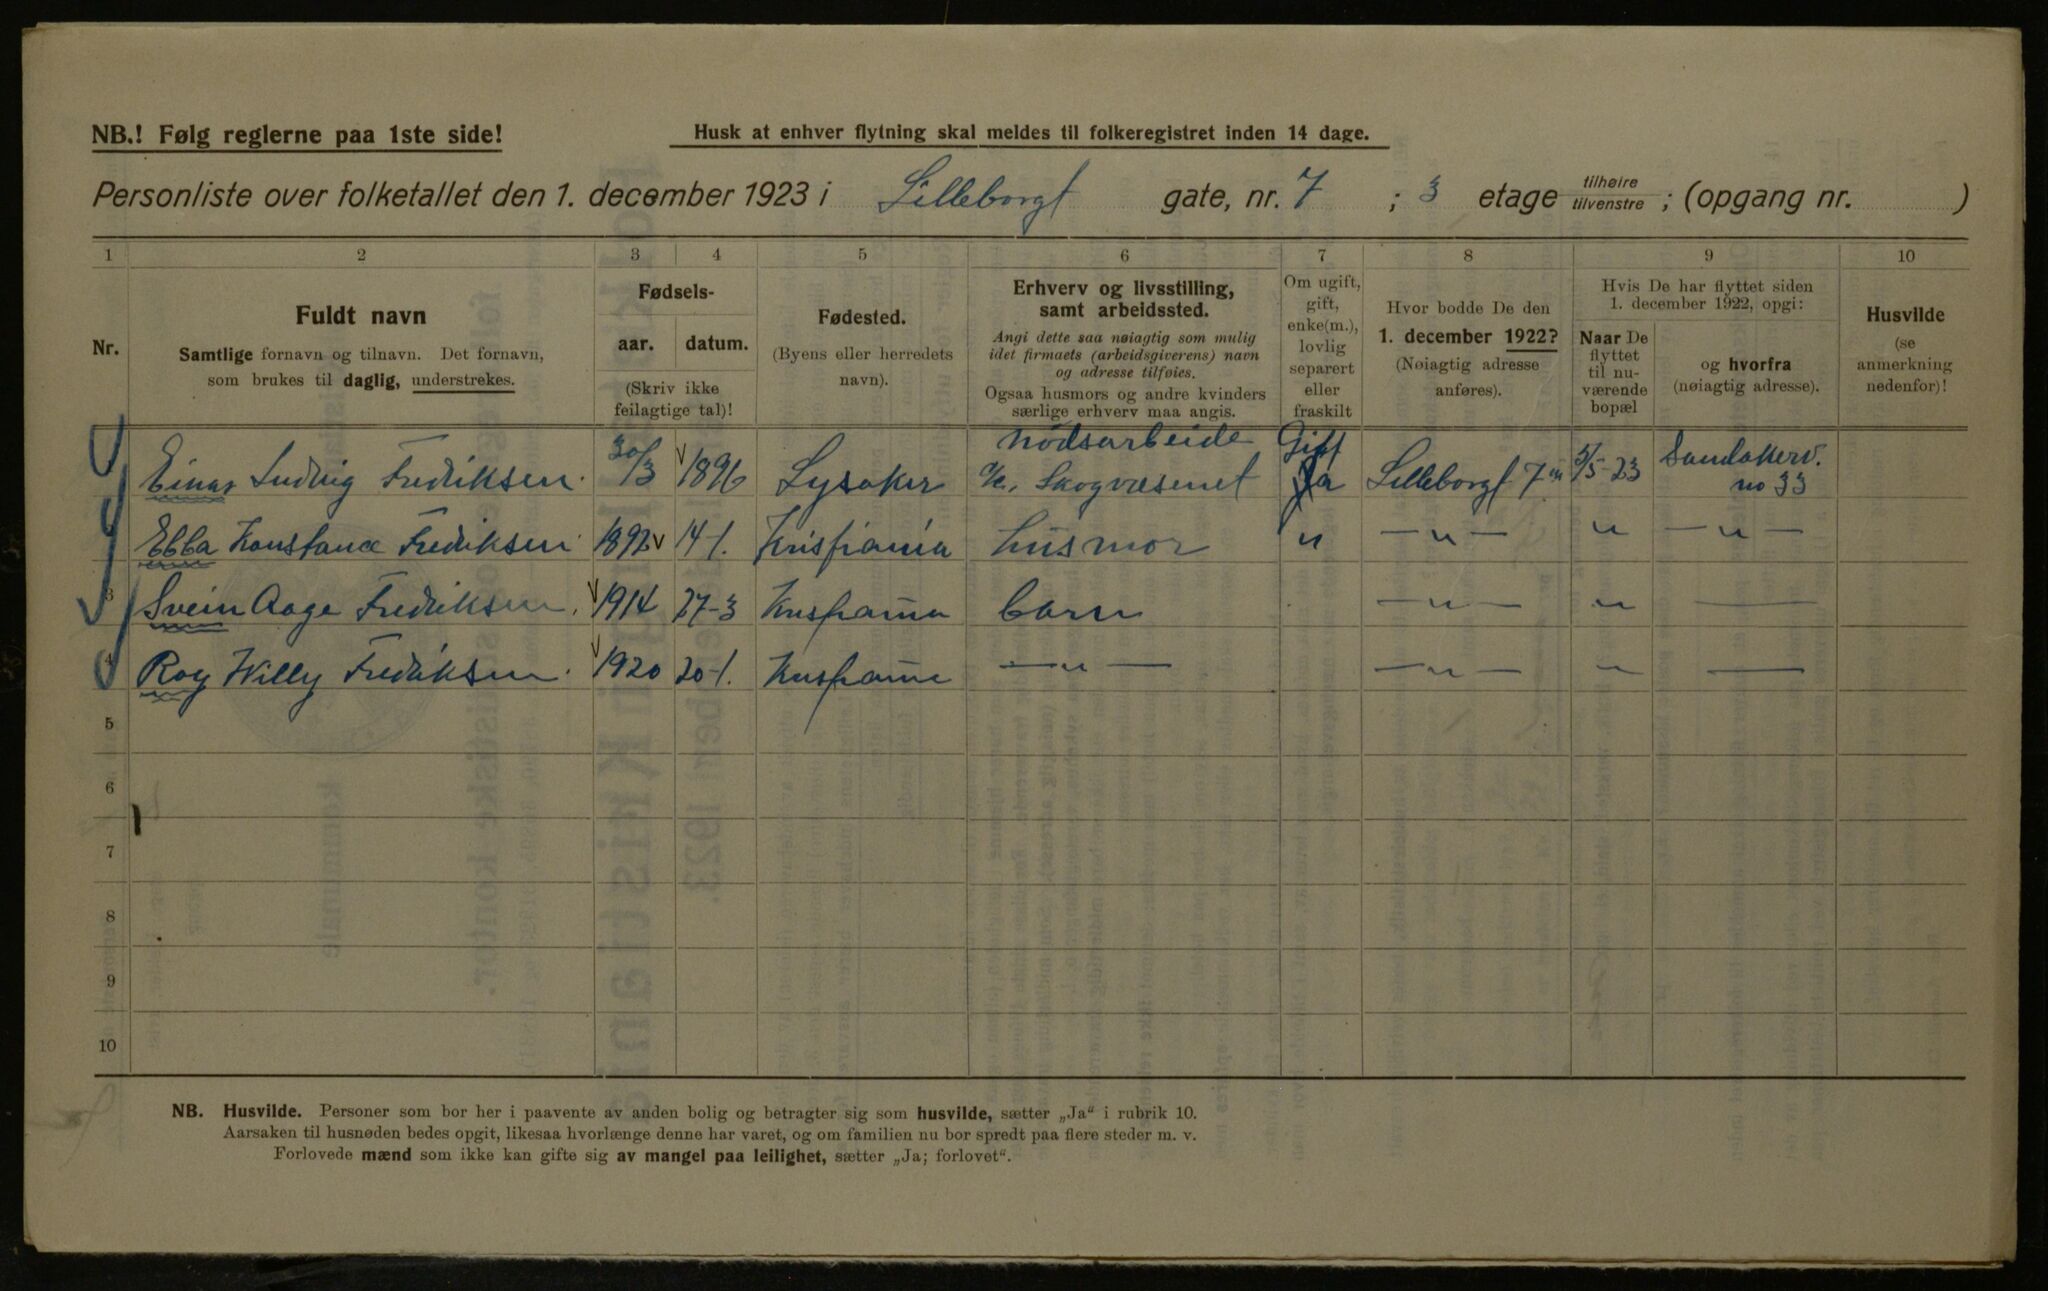 NB.! Følg reglerne paa 1ste side!
Husk at enhver flytning skal meldes til folkeregistret inden 14 dage.
Personliste over folketallet den 1. december 1923 i Lilleborgt gate, nr. 7 ; 3 etage tilhøire tilvenstre ; (opgang nr. )
1 2 3 4 5 6 7 8 9 10
Nr.
Fuldt navn
Samtlige fornavn og tilnavn. Det fornavn,
som brukes til daglig, understrekes.
Fødsels-
aar. datum.
(Skriv ikke
feilagtige tal)!
Fødested.
(Byens eller herredets
navn).
Erhverv og livsstilling,
samt arbeidssted.
Angi dette saa nøiagtig som mulig
idet firmaets (arbeidsgiverens) navn
og adresse tilføies.
Ogsaa husmors og andre kvinders
særlige erhverv maa angis.
Om ugift,
gift,
enke(m.),
lovlig
separert
eller
fraskilt
Hvor bodde De den
1. december 1922?
(Nøiagtig adresse
anføres).
Hvis De har flyttet siden
1. december 1922, opgi:
Naar De
flyttet
til nu-
værende
bopæl
og hvorfra
(nøiagtig adresse).
Husvilde
(se
anmerkning
nedenfor)!
nödsarbeide Gift
Einar Ludvig Fredriksen. 30/3 1896 Lysaker Skogvæsenet Ja Lilleborgt 7 5/5-23 Sandakerv. no 33
Ebba Konstance Fredriksen 1892 14-1. Kristiania husmor " —"— " —"—
3 Svein Aage Fredriksen. 1914 27-3 Kristiania barn —"— " —
4 Roy Willy Fredriksen. 1920 20-1. Kristiania —"— —"— " —
5
6
7
8
9
10
NB. Husvilde. Personer som bor her i paavente av anden bolig og betragter sig som husvilde, sætter „Ja“ i rubrik 10.
Aarsaken til husnøden bedes opgit, likesaa hvorlænge denne har varet, og om familien nu bor spredt paa flere steder m. v.
Forlovede mænd som ikke kan gifte sig av mangel paa leilighet, sætter „Ja; forlovet“.